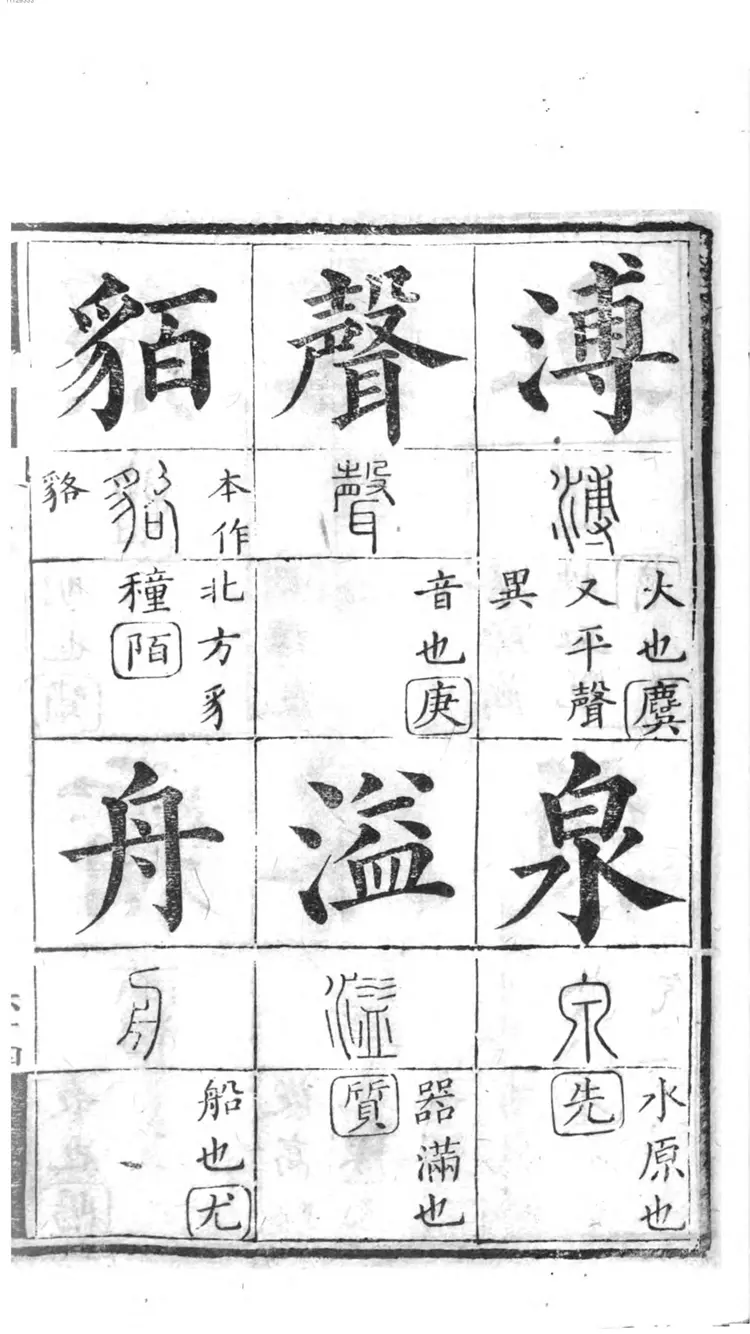 溥
溥
大也麌
又平聲
異
泉
泉
水原也
先
聲
聲
音也庚
溢
溢
器滿也
質
貊
本作
貉
貉
北方豸
種陌
舟
舟
船也尤